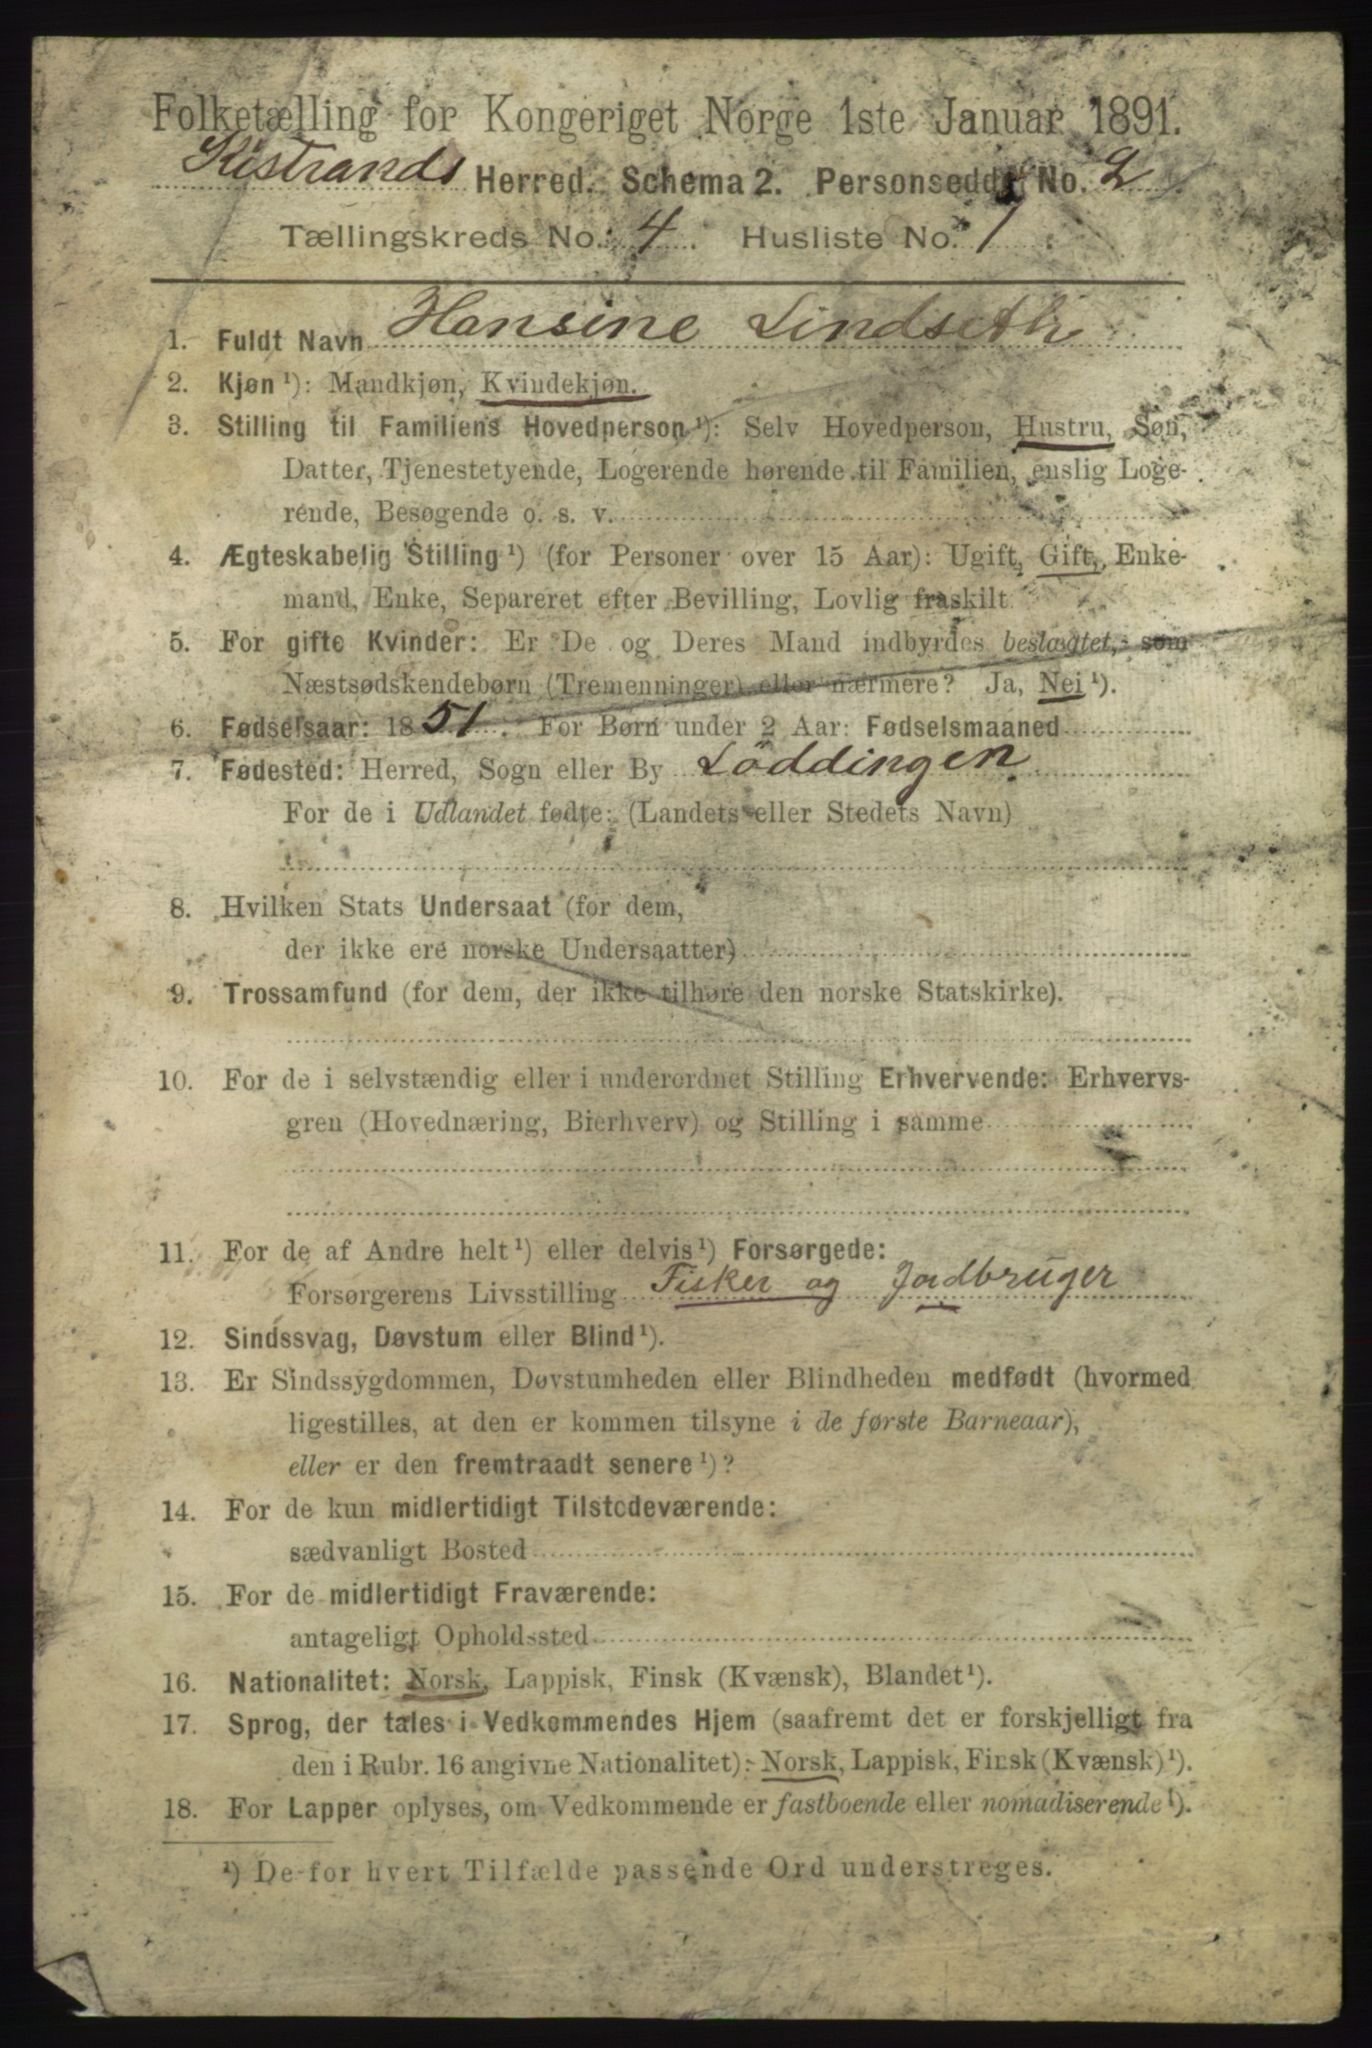 Folketælling for Kongeriget Norge 1ste Januar 1891.
Kistrands Herred. Schema 2. Personseddel No. 2
Tællingskreds No. 4. Husliste No. 1
1. Fuldt Navn Hansine Lindseth
2. Kjøn ¹): Mandkjøn, Kvindekjøn.
3. Stilling til Familiens Hovedperson ¹): Selv Hovedperson, Hustru, Søn,
Datter, Tjenestetyende, Logerende hørende til Familien, enslig Loge-
rende, Besøgende o. s. v.
4. Ægteskabelig Stilling ¹) (for Personer over 15 Aar): Ugift, Gift, Enke-
mand, Enke, Separeret efter Bevilling, Lovlig fraskilt
5. For gifte Kvinder: Er De og Deres Mand indbyrdes beslægtet, som
Næstsødskendebørn (Tremenninger) eller nærmere? Ja, Nei ¹).
6. Fødselsaar: 1851. For Børn under 2 Aar: Fødselsmaaned
7. Fødested: Herred, Sogn eller By Löddingen
For de i Udlandet fødte: (Landets eller Stedets Navn)
8. Hvilken Stats Undersaat (for dem,
der ikke ere norske Undersaatter)
9. Trossamfund (for dem, der ikke tilhøre den norske Statskirke).
10. For de i selvstændig eller i underordnet Stilling Erhvervende: Erhvervs-
gren (Hovednæring, Bierhverv) og Stilling i samme
11. For de af Andre helt ¹) eller delvis ¹) Forsørgede:
Forsørgerens Livsstilling Fisker og Jordbruger
12. Sindssvag, Døvstum eller Blind ¹).
13. Er Sindssygdommen, Døvstumheden eller Blindheden medfødt (hvormed
ligestilles, at den er kommen tilsyne i de første Barneaar),
eller er den fremtraadt senere ¹)?
14. For de kun midlertidigt Tilstedeværende:
sædvanligt Bosted
15. For de midlertidigt Fraværende:
antageligt Opholdssted
16. Nationalitet: Norsk, Lappisk, Finsk (Kvænsk), Blandet ¹).
17. Sprog, der tales i Vedkommendes Hjem (saafremt det er forskjelligt fra
den i Rubr. 16 angivne Nationalitet): Norsk, Lappisk, Finsk (Kvænsk) ¹).
18. For Lapper oplyses, om Vedkommende er fastboende eller nomadiserende ¹).
¹) De for hvert Tilfælde passende Ord understreges.